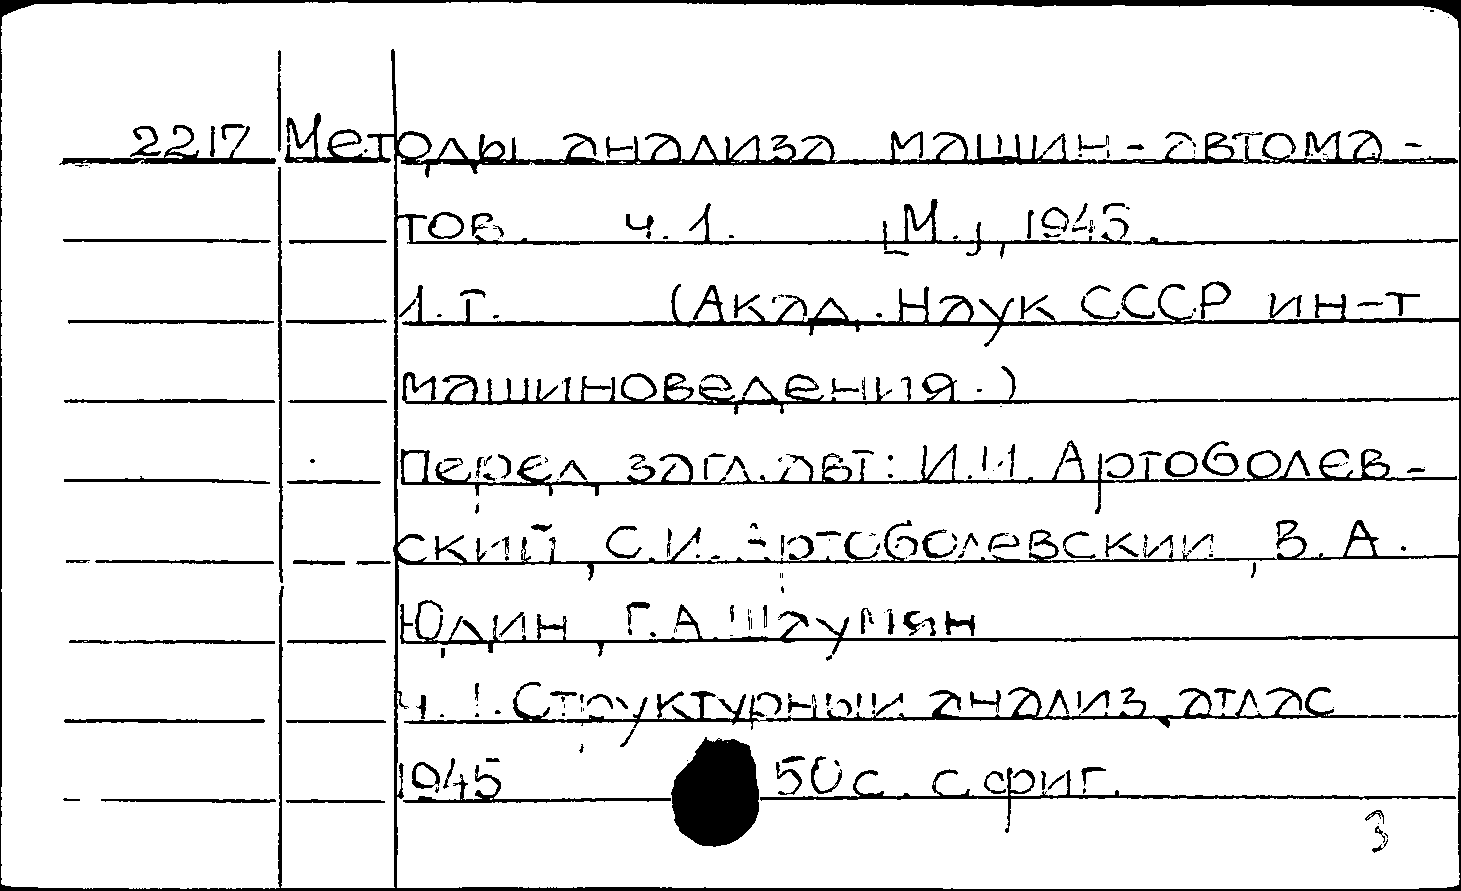 2217 Методы анализа машин-автома-
тов. ч.1. [М.], 1945.
1.т. (Акад. Наук СССР ин-т
машиноведения.)
Перед загл. авт: И.И. Артоболев-
ский, С.И. Артоболевский, В.А.
Юдин, Г.А. Шаумян
ч. 1. Структурный анализ, атлас
1945 50с. с фиг.
3